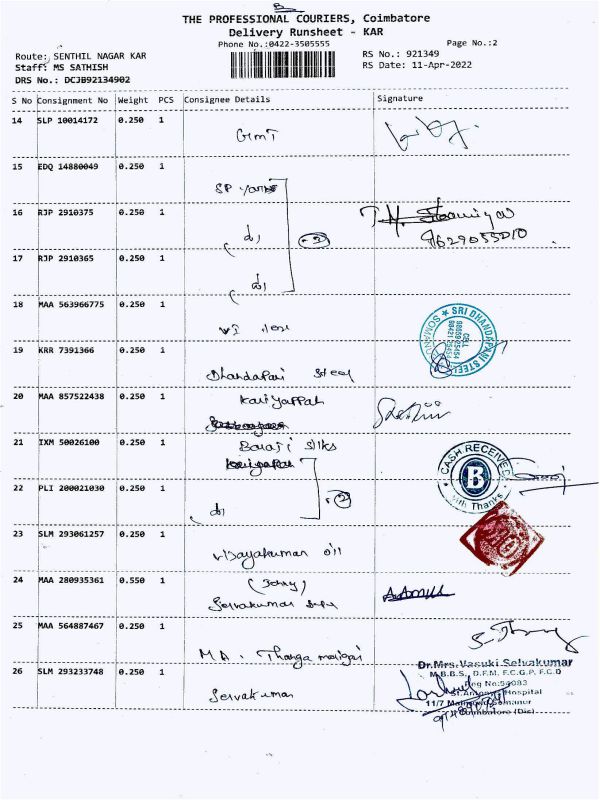 B
THE PROFESSIONAL COURIERS, Coimbatore
Delivery Runsheet - KAR
Phone No.:0422-3505555
Page No.:2
Route: SENTHIL NAGAR KAR
RS No.: 921349
Staff: MS SATHISH
RS Date: 11-Apr-2022
DRS No.: DCJB92134902
S No Consignment No Weight PCS Consignee Details Signature
14 SLP 10014172 0.250 1
GMT
15 EDQ 14880049 0.250 1
SP
16 RJP 2910375 0.250 1
17 RJP 2910365 0.250 1
18 MAA 563966775 0.250 1
SRI DHANDAPANI STEEL
SOMANUR
CELL
19 KRR 7391366 0.250 1
Dhandapani Steel
20 MAA 857522438 0.250 1
Kariyappah
21 IXM 50026100 0.250 1
Balaji Silks
CASH RECEIVED
B
With Thanks
22 PLI 200021030 0.250 1
23 SLM 293061257 0.250 1
Vijayakumar oil
24 MAA 280935361 0.550 1
Selvakumar
25 MAA 564887467 0.250 1
MA. Thanga maligai
26 SLM 293233748 0.250 1
Selvakumar
Dr.Mrs.Vasuki Selvakumar
M.B.B.S., D.F.M, F.C.G.P, F.C.D
Reg No:54083
Hospital
11/7 Somanur
Coimbatore (Dis)